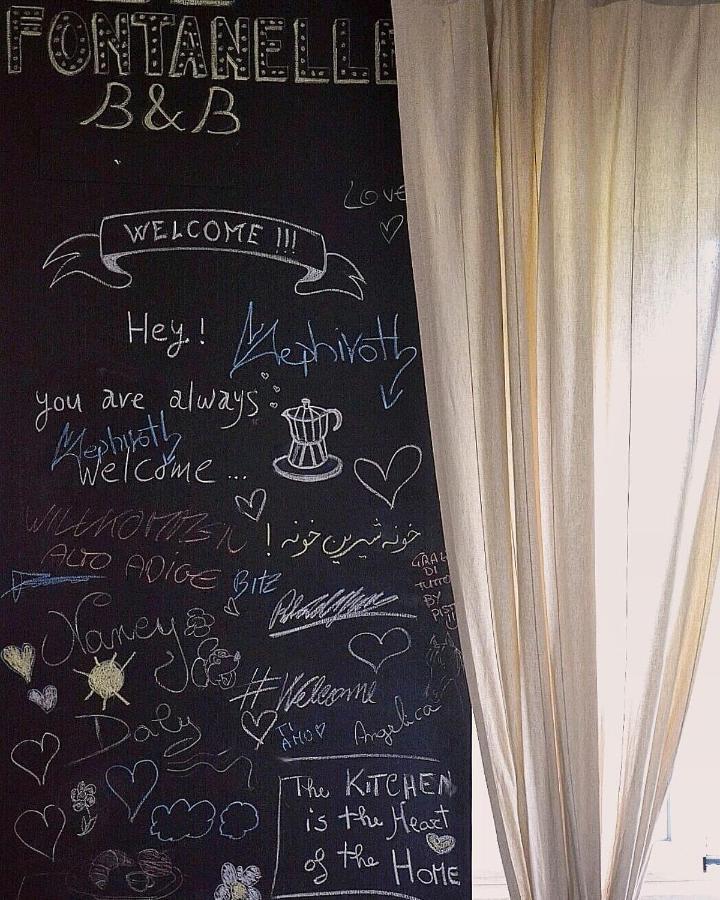 FONTANELLE
B&B
LOVE
WELCOME !!!
Hey!
Mephiroth
you are always
Mephiroth
Welcome ...
WILLKOMMEN
خونه شیرین خونه !
ALTO ADIGE
BITZ
DI
TUTTO
BY
Nancy
#Welcome
Daly
TI AMO
Angelica
The KITCHEN
is the Heart
of the HOME